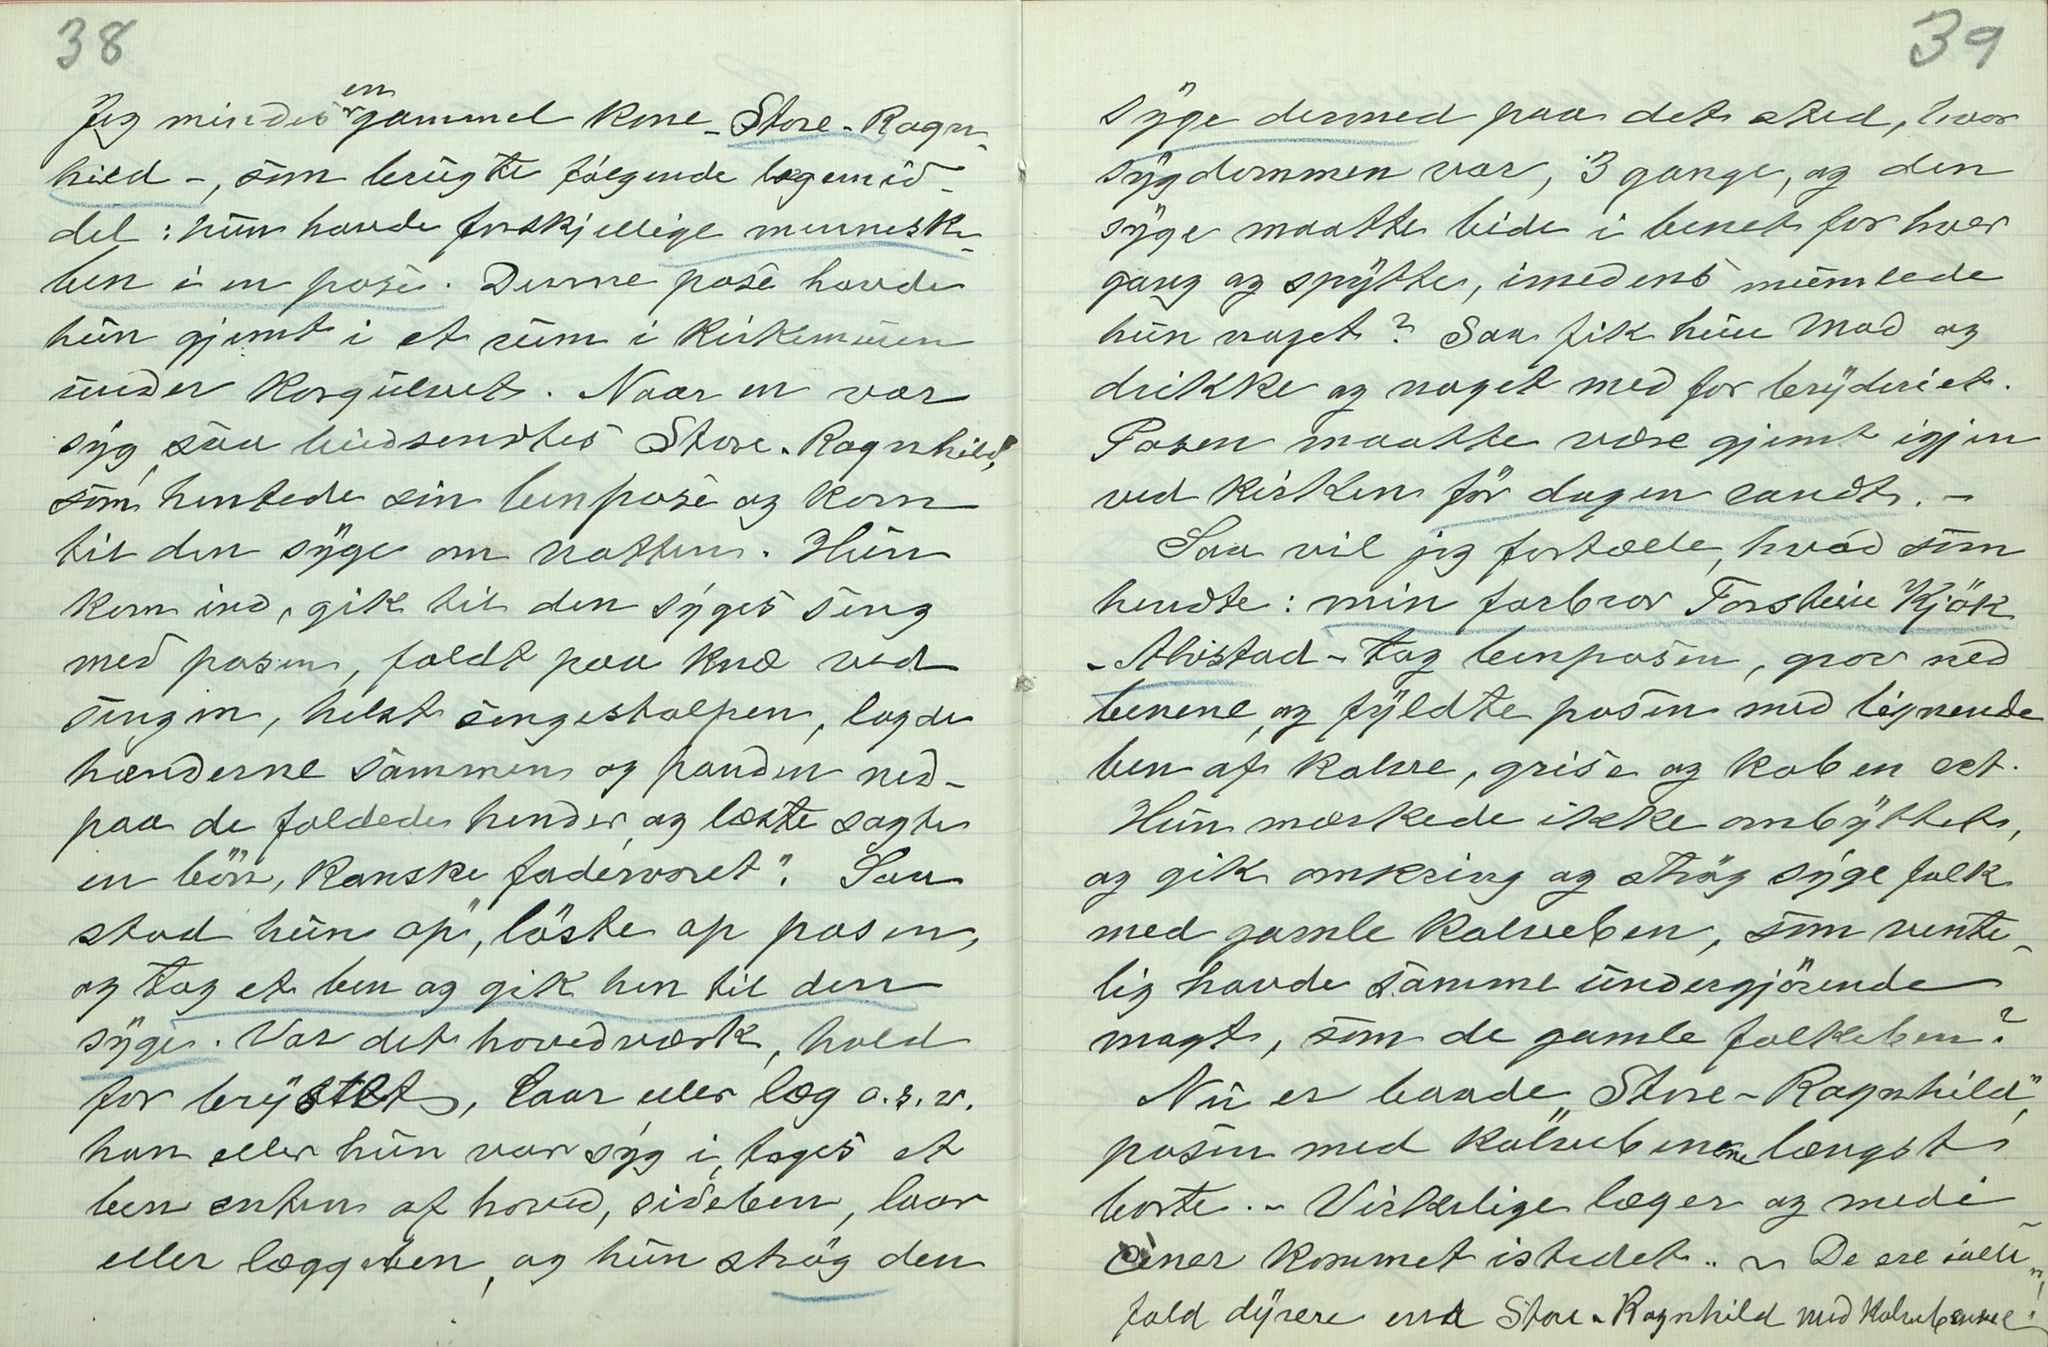 38
Jeg mindes en gammel kone - Store-Ragn-
hild -, som brugte følgende lægemid-
del: hun havde forskjellige menneske-
ben i en pose. Denne pose havde
hun gjemt i et rum i kirkemuren
under korgulvet. Naar en var
syg, saa budsendtes Store-Ragnhild,
som hentede sin benpose og kom
til den syge om natten. Hun
kom ind, gik til den syges seng
med posen, faldt paa knæ ved
sengen, helst sengestolpen, lagde
hænderne sammen og panden ned-
paa de foldede hender, og læste sagte
en bön, kanske fadervoret". Saa
stod hun op", löste op posen,
og tog et ben og gik hen til den
syge. Var det hovedværk, hold
for brystet, laar eller læg o.s.v.
han eller hun var syg i, toges et
ben enten af hoved, sideben, laar
eller læggeben, og hun strög den
39
syge dermed paa det sted, hvor
sygdommen var, 3 gange, og den
syge maatte bide i benet for hver
gang og spytte, imedens mumlede
hun noget? Saa fik hun mad og
drikke og noget med for bryderiet.
Posen maatte være gjemt igjen
ved kirken før dagen randt. -
Saa vil jeg fortælle, hvad som
hendte: min farbror Torstein Kjök
- Alvstad - tog benposen, grov ned
benene, og fyldte posen med lignende
ben af kalve, grise og kaben ect.
Hun mærkede ikke ombyttet,
og gik omkring og strög syge folk
med gamle kalveben, som vente-
lig havde samme undergjörende
magt, som de gamle folkeben?
Nu er baade "Store-Ragnhild",
posen med kalvebenene længst
borte. - Virkelige læger og medi
ciner kommet istedet.. ~ De ere ialle-
fald dyrere end Store-Ragnhild med kalvebenene!